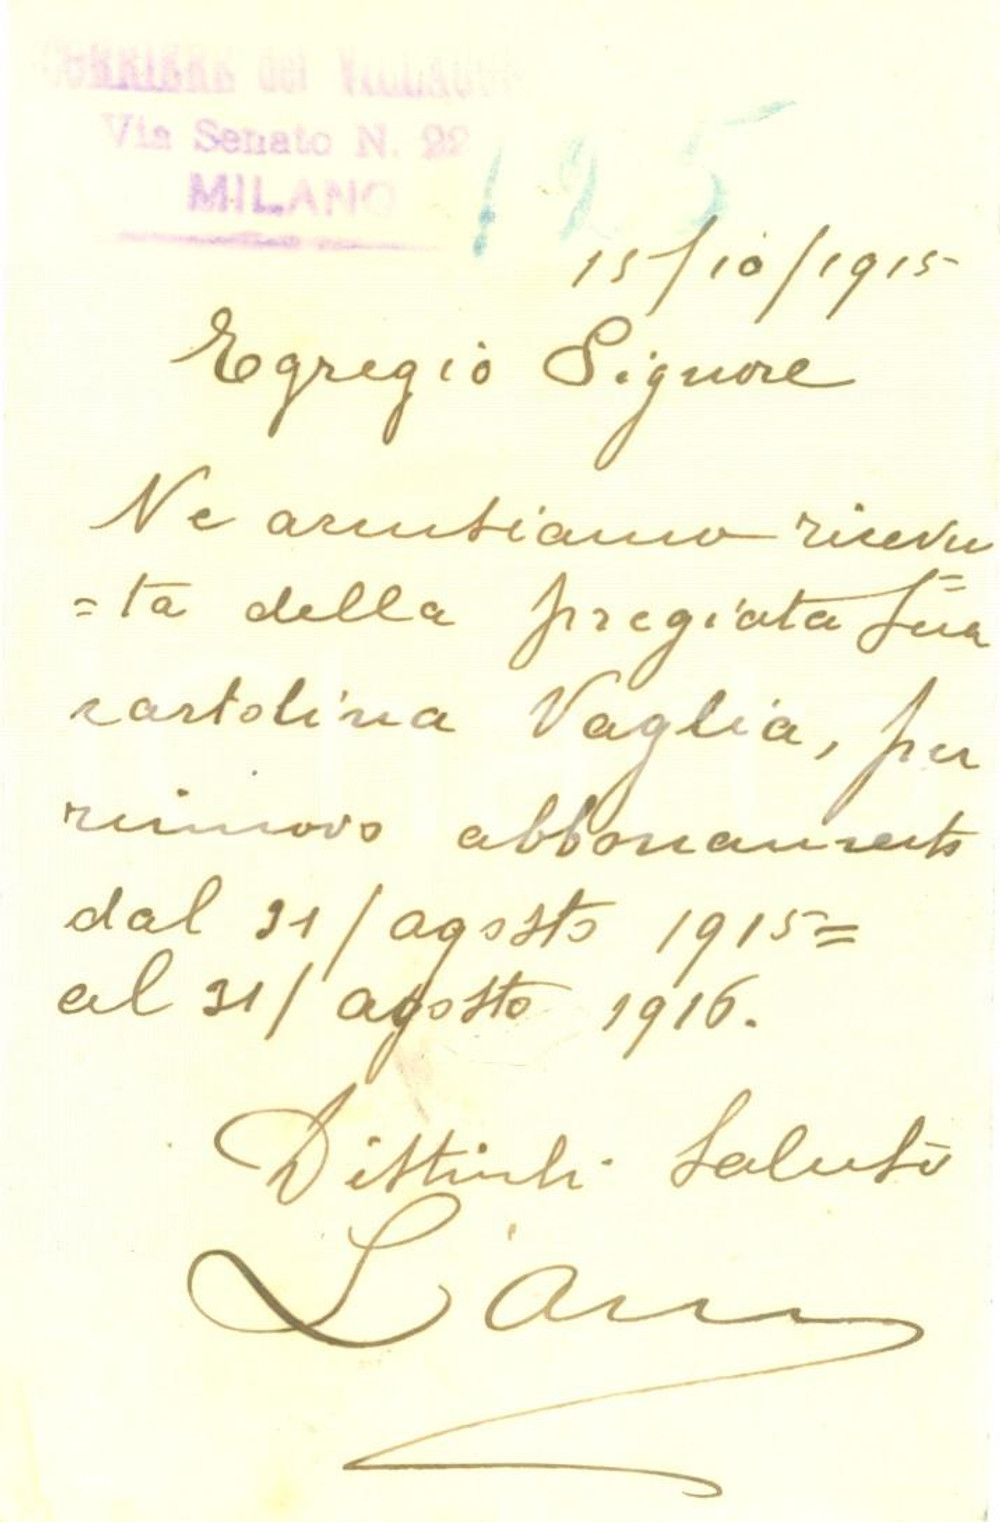 CORRIERE del VILLAGGIO
Via Senato N. 22
MILANO
195
15/10/1915
Egregio Signore
Ne accusiamo ricevu=
=ta della pregiata Sua
cartolina Vaglia, per
rinnovo abbonamento
dal 31/agosto 1915=
al 31/agosto 1916.
Distinti Saluti
L'Amm